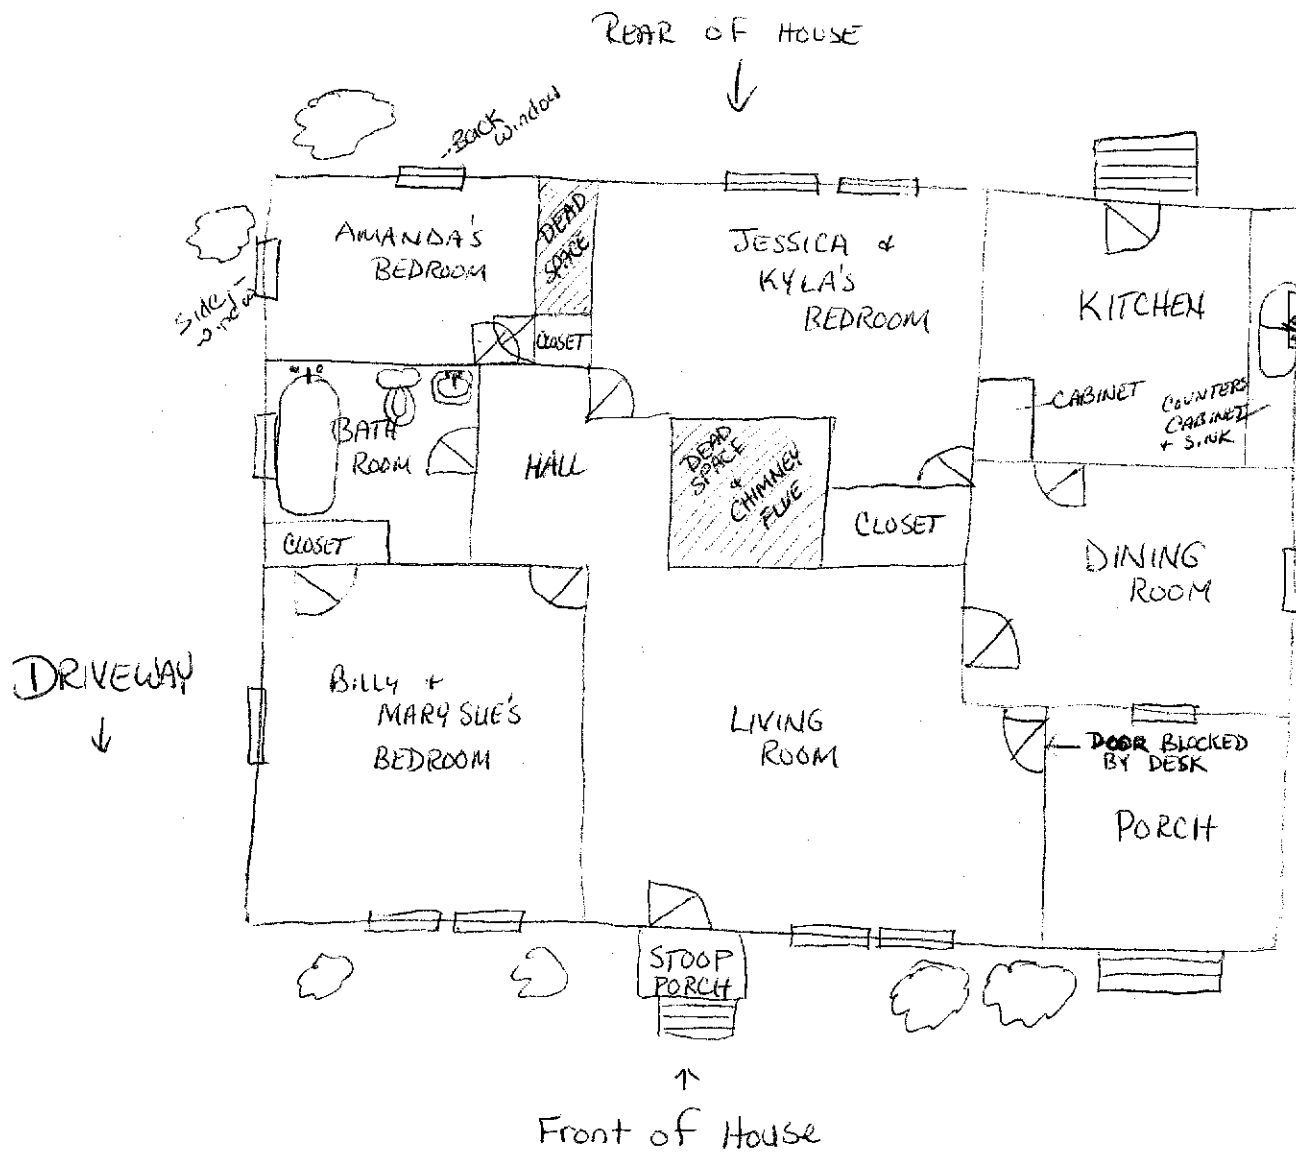 REAR OF HOUSE
BACK
Window
AMANDA'S
BEDROOM
DEAD
SPACE
JESSICA &
KYLA'S
BEDROOM
KITCHEN
Side
window
CLOSET
CABINET
COUNTERS
CABINET
+ SINK
BATH
ROOM
HALL
DEAD
SPACE
&
CHIMNEY
FLUE
CLOSET
CLOSET
DINING
ROOM
DRIVEWAY
BILLY +
MARY SUE'S
BEDROOM
LIVING
ROOM
DOOR BLOCKED
BY DESK
PORCH
STOOP
PORCH
Front of House